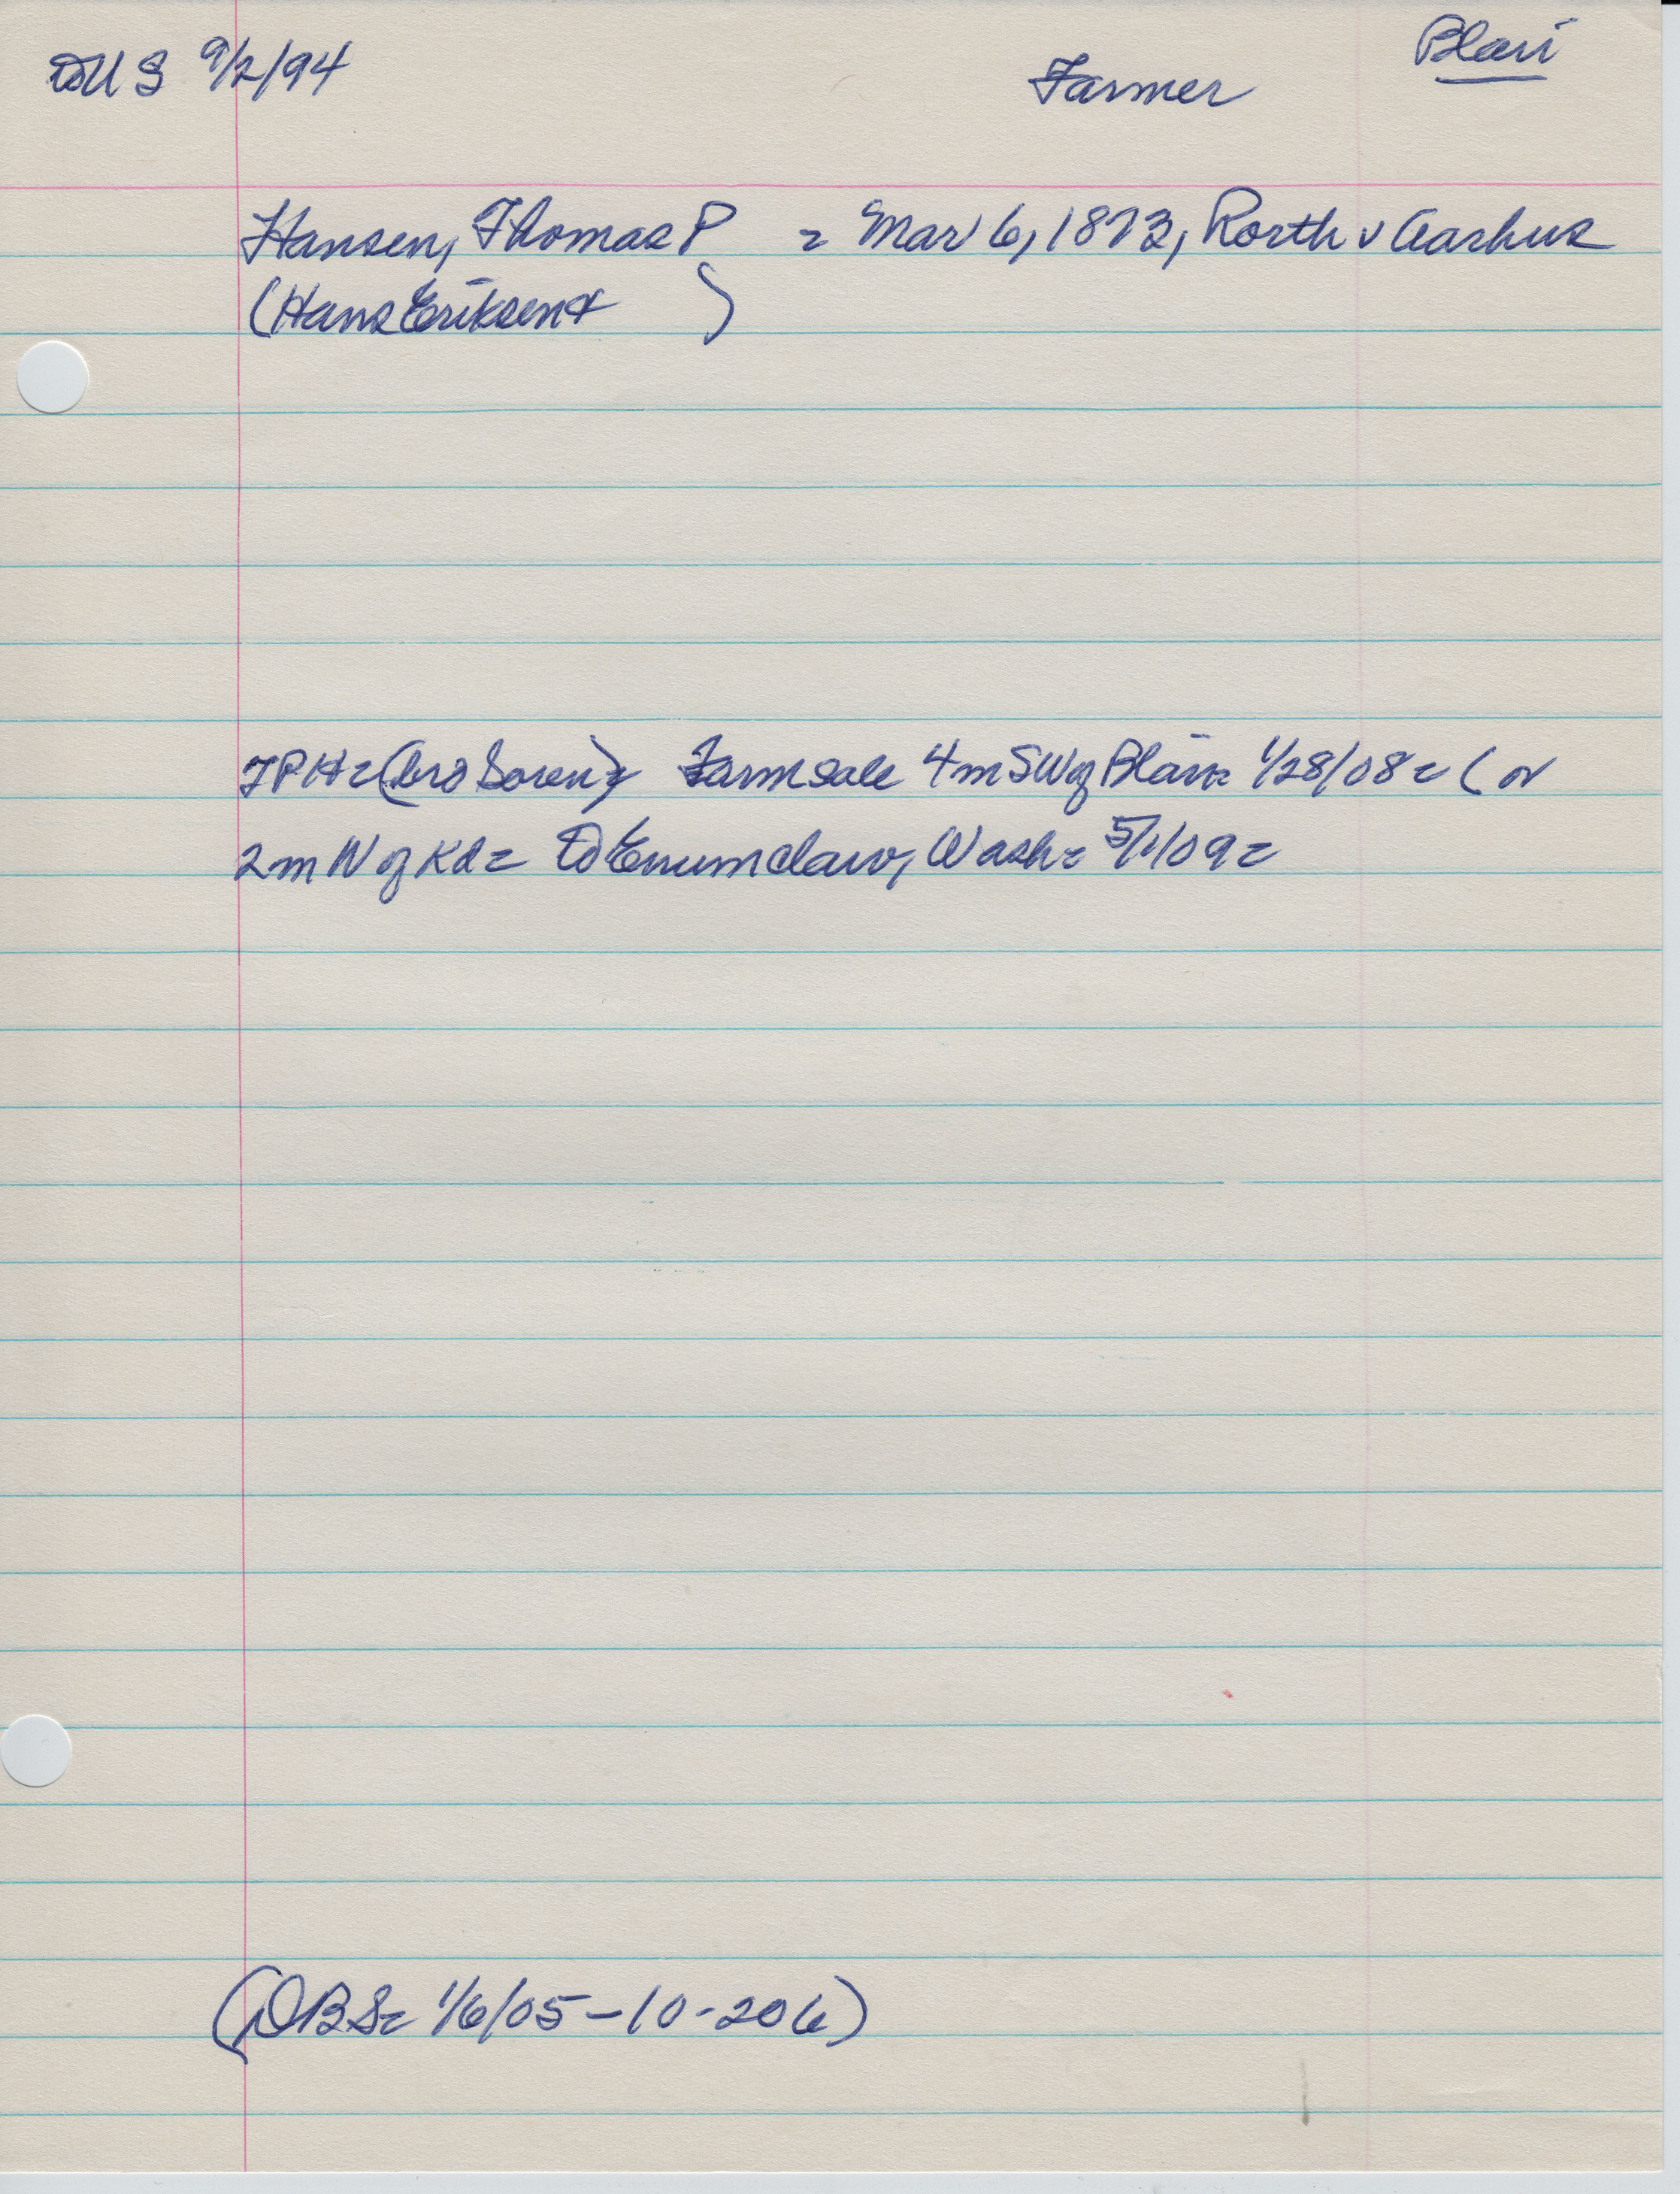 To U S 9/2/94
Farmer
Blair
Hansen, Thomas P = Mar 6, 1873, Rorth v Aarhus
(Hans Eriksen + )
TPH = (bro Soren) = Farm sale 4 m SW of Blair = 1/28/08 = ( or
2 m W of Kd = To Enumclaw, Wash = 5/1/09 =
(DBS = 1/6/05 - 10 - 206)